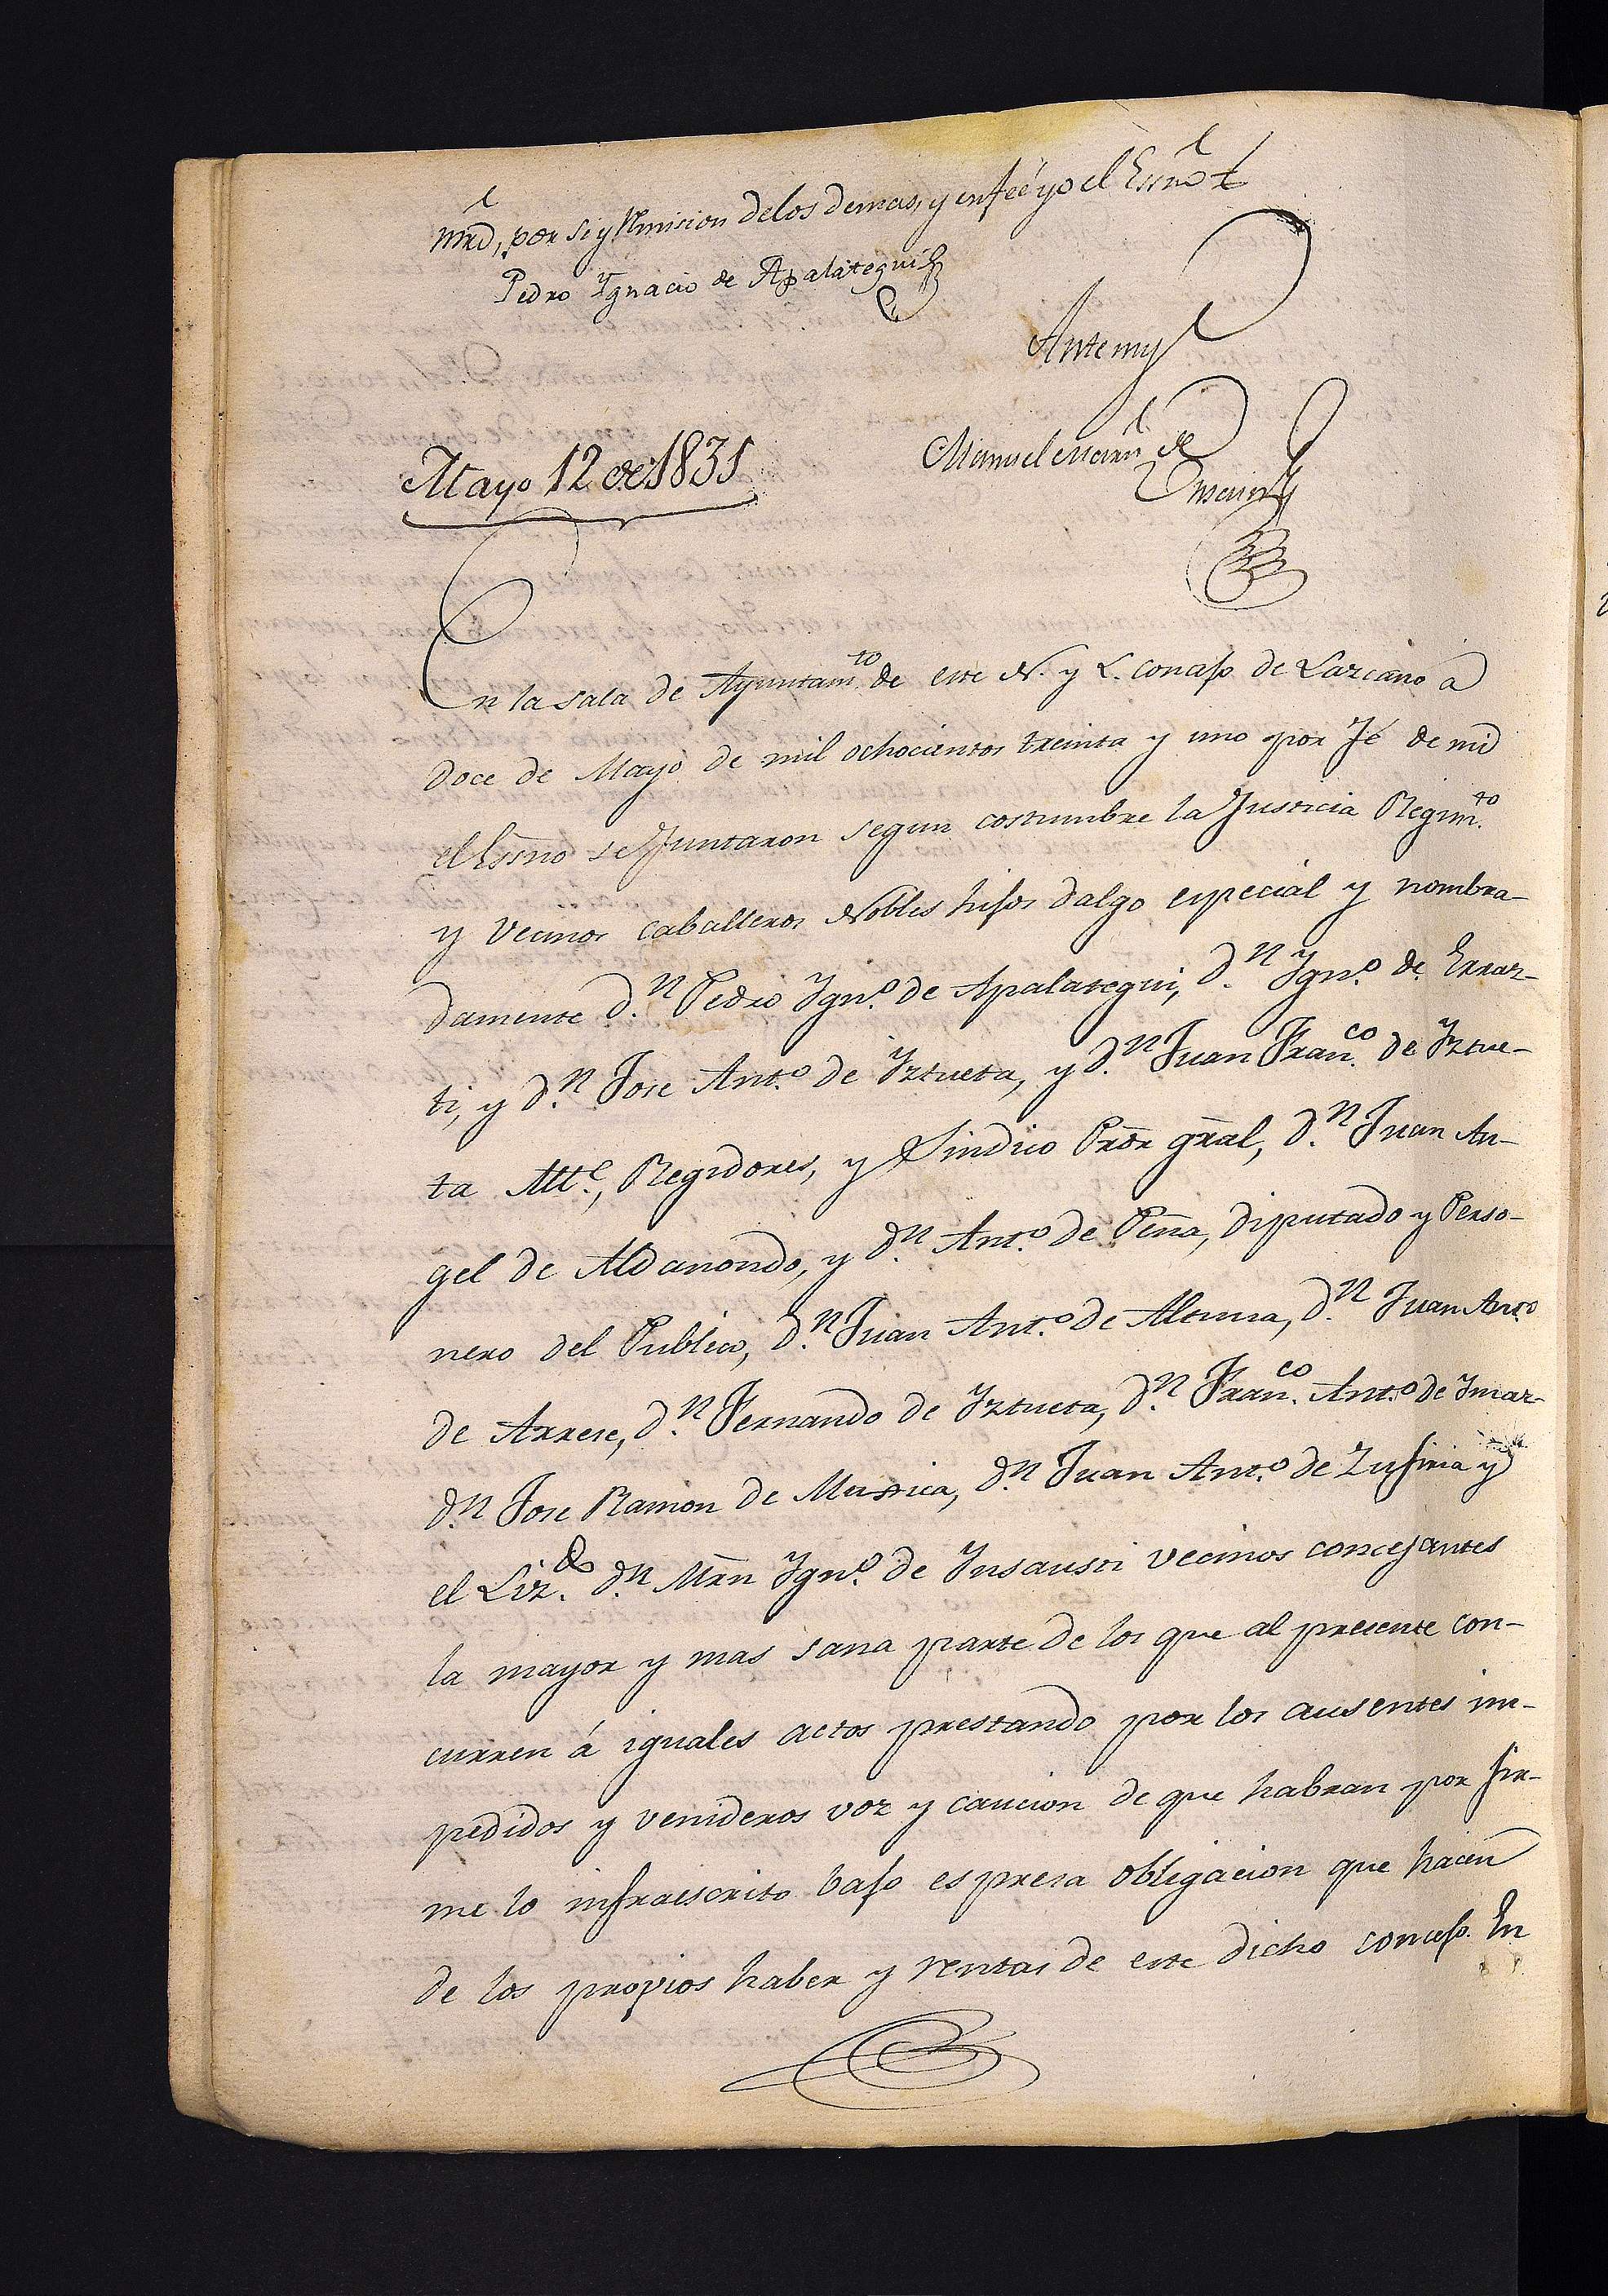 mrd, por si y Rmision de los demas, y en feé yo el Essno
Pedro Ygnacio de Apalategui
Antemy
Manuel Marin de
Mayo 12 de 1831
En la sala de Ayuntamto de este N. y L. concejo de Lazcano á
doce de Mayo de mil ochocientos treinta y uno por fé de mi
el Essno se Juntaron segun costumbre la Justicia Regimto
y vecinos caballeros Nobles hijos dalgo especial y nombra-
damente d.n Pedro Ygn.o de Apalategui, d.n Ygn.o de Erraz-
ti, y d.n Jose Ant.o de Yztueta, y d.n Juan Franco de Yztue-
ta Alle, Regidores, y Sindico Prõr grãl, d.n Juan An-
gel de Aldanondo, y d.n Ant.o de Peña, diputado y Perso-
nero del Publico, d.n Juan Ant.o de Altuna, d.n Juan Anto
de Arrese, d.n Fernando de Yztueta, d.n Franco Ant.o de Ymaz-
d.n Jose Ramon de Muxica, d.n Juan Ant.o de Zufiria y
el Liz.do d.n Mrñ Ygn.o de Ynsausti vecinos concejantes
la mayor y mas sana parte de los que al presente con-
curren á iguales actos prestando por los ausentes im-
pedidos y venideros voz y caucion de que habran por fir-
me lo infraescrito bajo espresa obligacion que hacen
de los propios haber y rentas de este dicho concejo. En